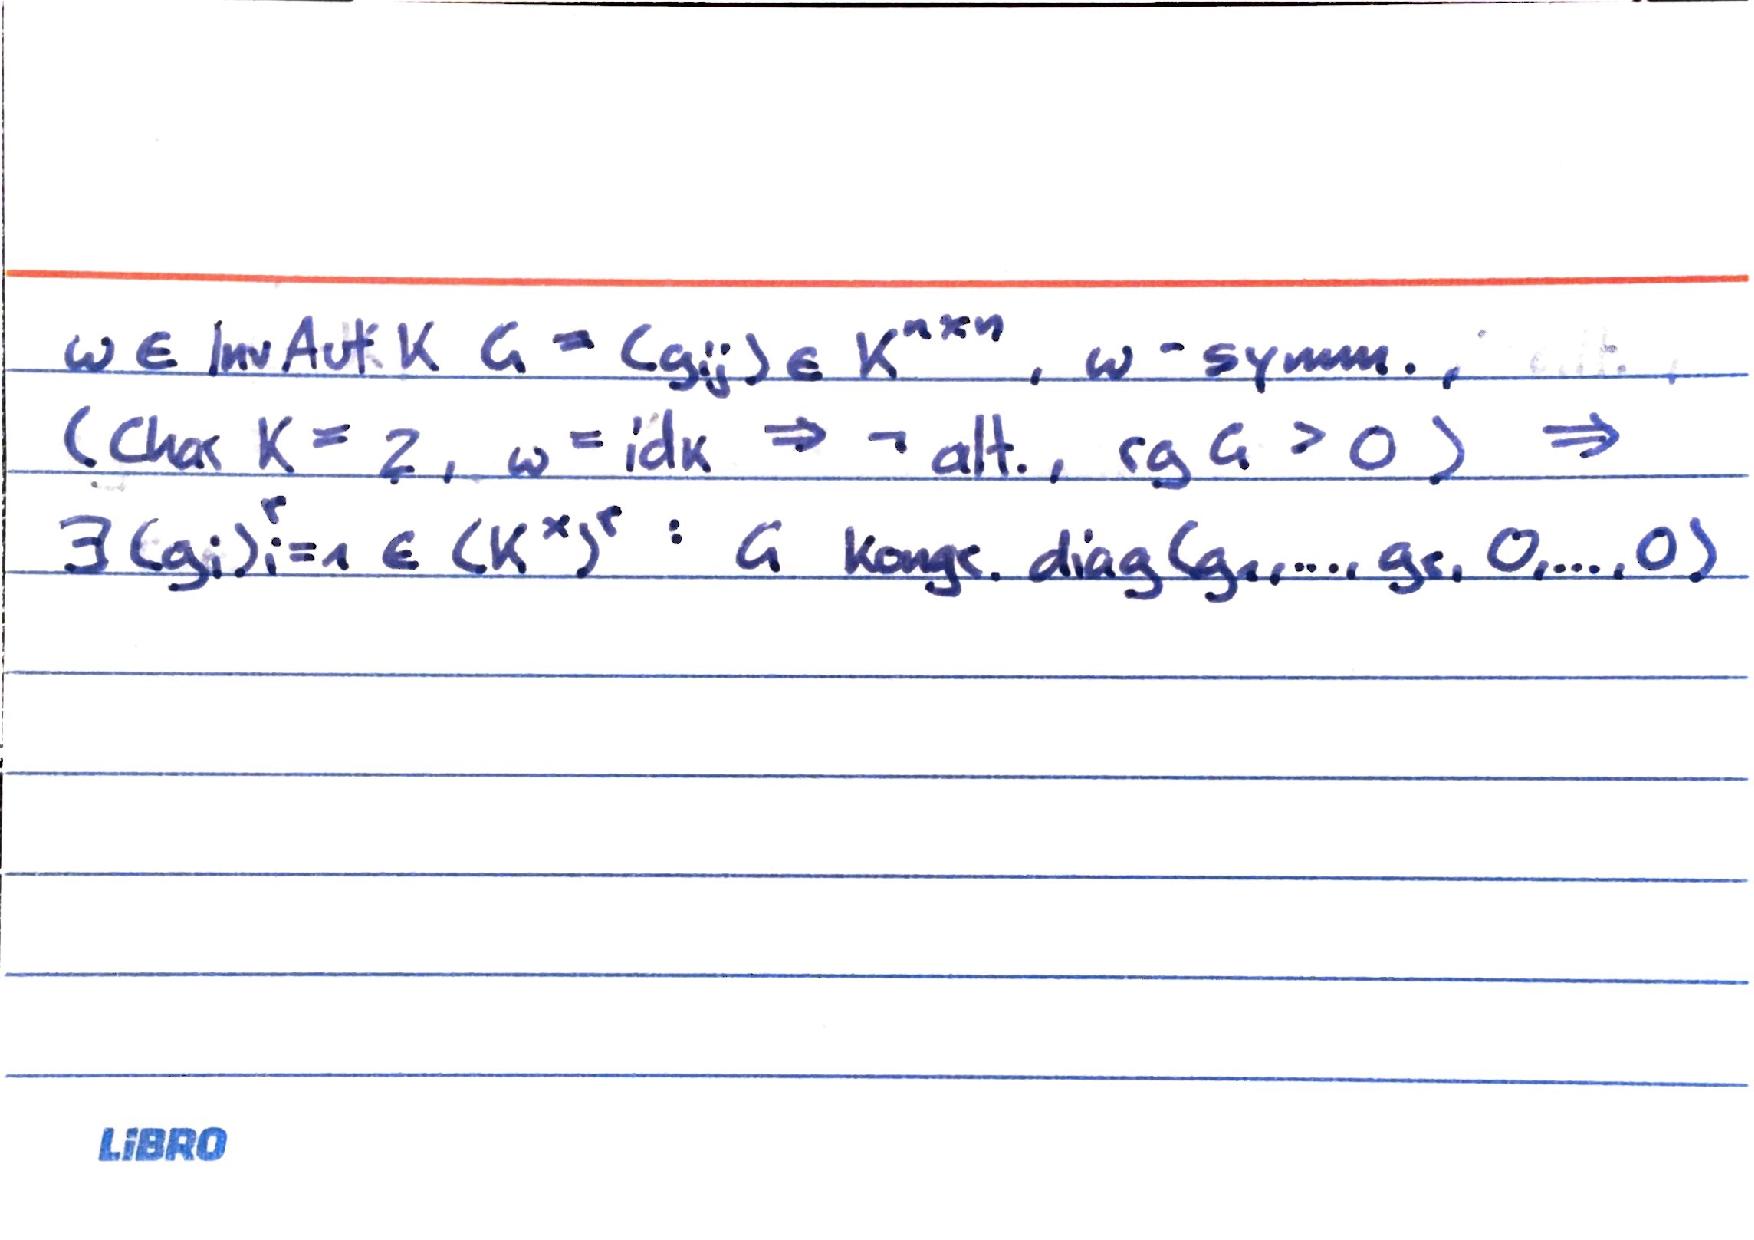 ω ∈ InvAut K G = (gij) ∈ K^{n×n}, ω-symm.,
(Char K = 2, ω = idK ⇒ ¬ alt., rg G > 0) ⇒
∃(gi)_{i=1}^{r} ∈ (K^×)^r : G kongr. diag(g1,..., gr, 0,..., 0)
LiBRO